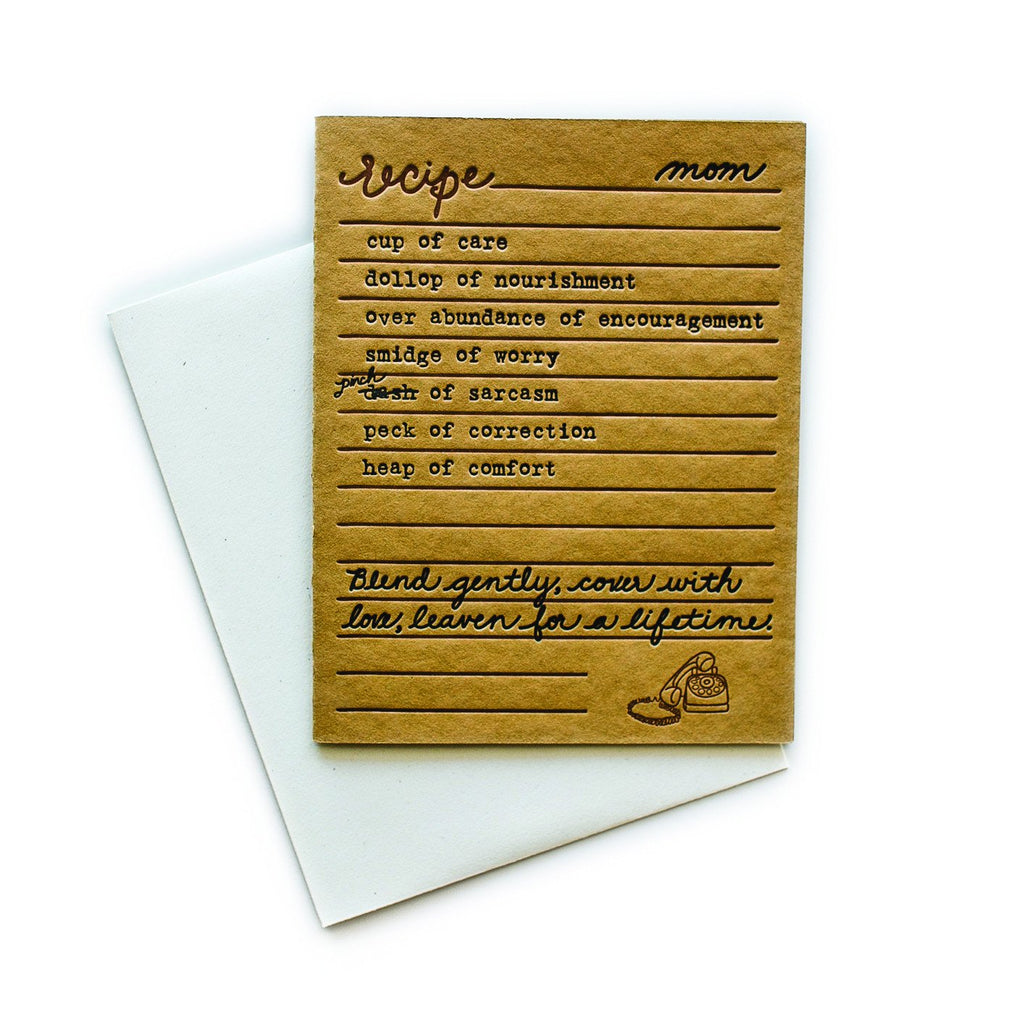 recipe mom
cup of care
dollop of nourishment
over abundance of encouragement
smidge of worry
pinch
dash of sarcasm
peck of correction
heap of comfort
Blend gently, cover with
love, leaven for a lifetime.